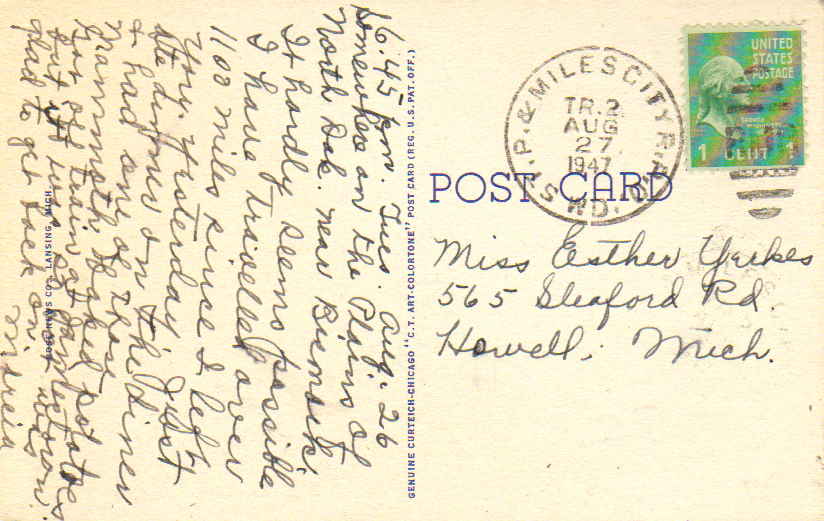 6.45 P.m. Tues. Aug. 26
Somewhere on the Plains of
North Dak. near Bismark.
It hardly seems possible
I have travelled over
1100 miles since I left
you yesterday. Just
ate dinner on the diner
& had one of those
Mammoth Baked potatoes
train at Jamestown
but it was
glad to get back on.
Marcia
GENUINE CURTEICH-CHICAGO "C.T. ART-COLORTONE" POST CARD (REG. U.S. PAT. OFF.)
NEWS CO., LANSING, MICH.
POST CARD
ST. P. & MILES CITY R.P.O.
TR. 2
AUG
27
1947
W.D.
UNITED
STATES
POSTAGE
1 CENT 1
Miss Esther Yerkes
565 Sleaford Rd.
Howell, Mich.